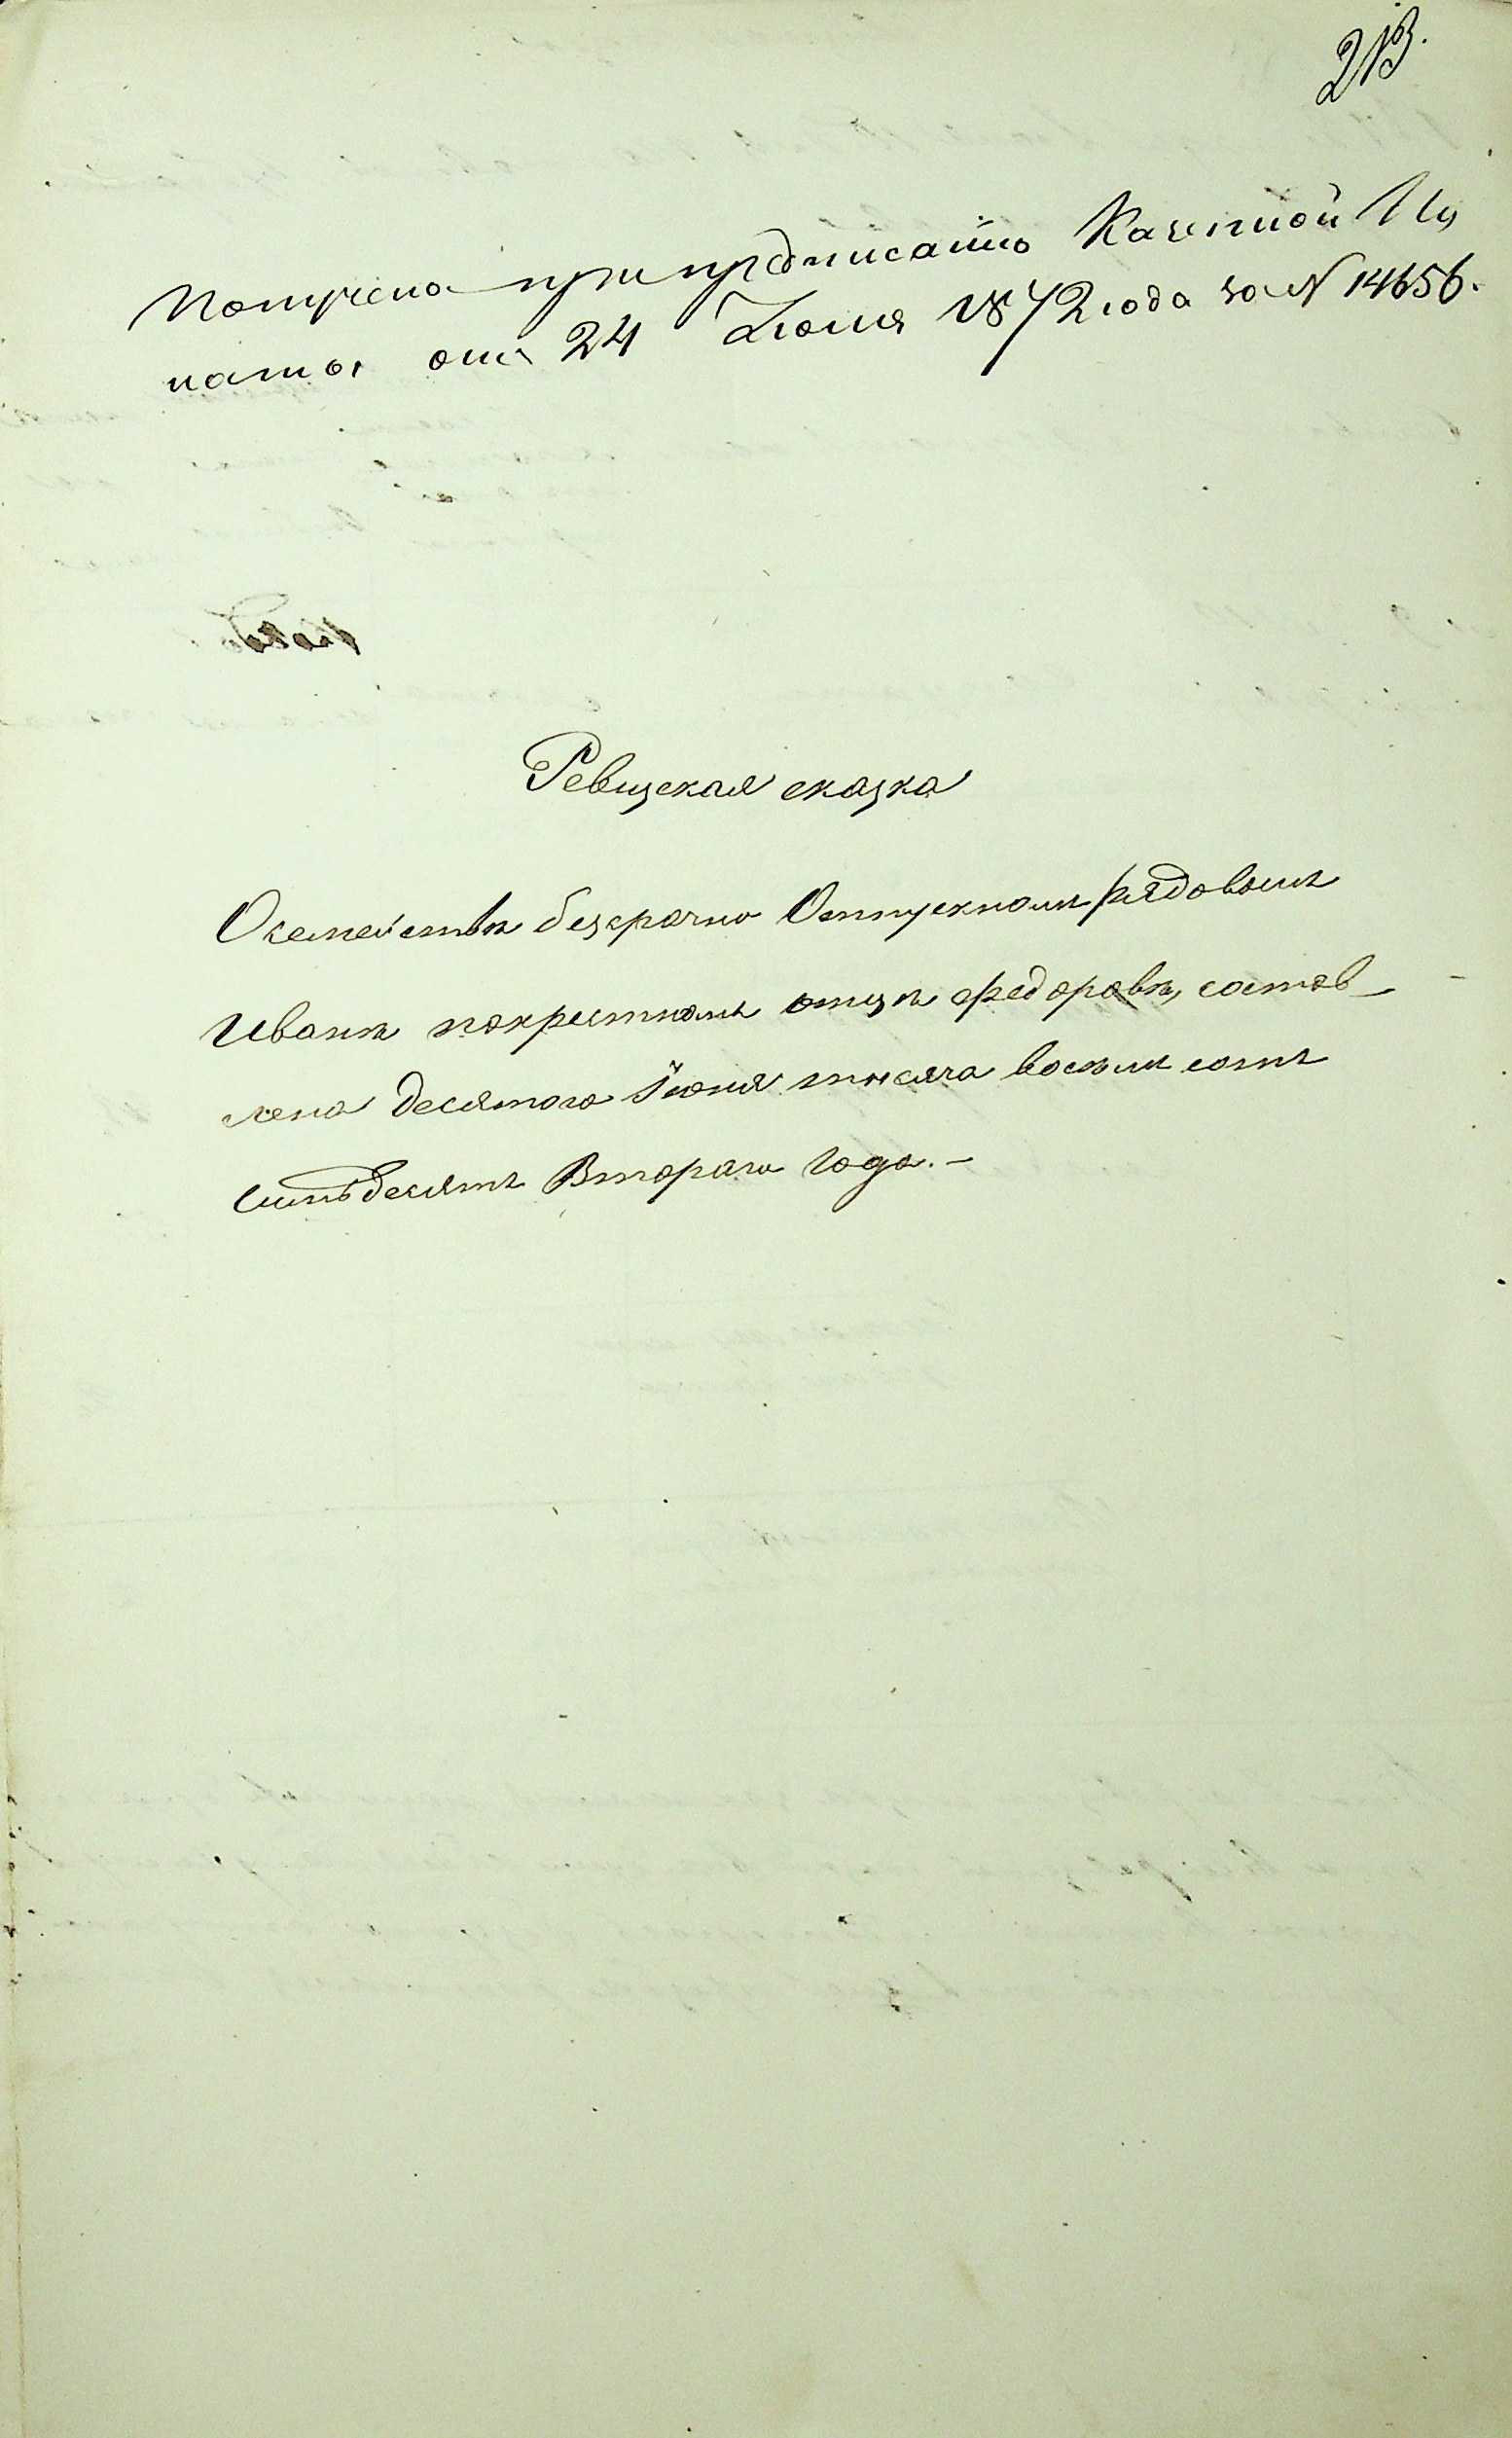 213.
Получена при предписанію Казенной Па
латы отъ 24 Іюня 1872 года за № 14656.
Ревизская сказка
О семействѣ безсрочно Отпускномъ рядовомъ
Иванѣ покрестномъ отцѣ Федоровѣ, состав-
лена десятого Іюня тысяча восемь сотъ
семьдесятъ Втораго года.-